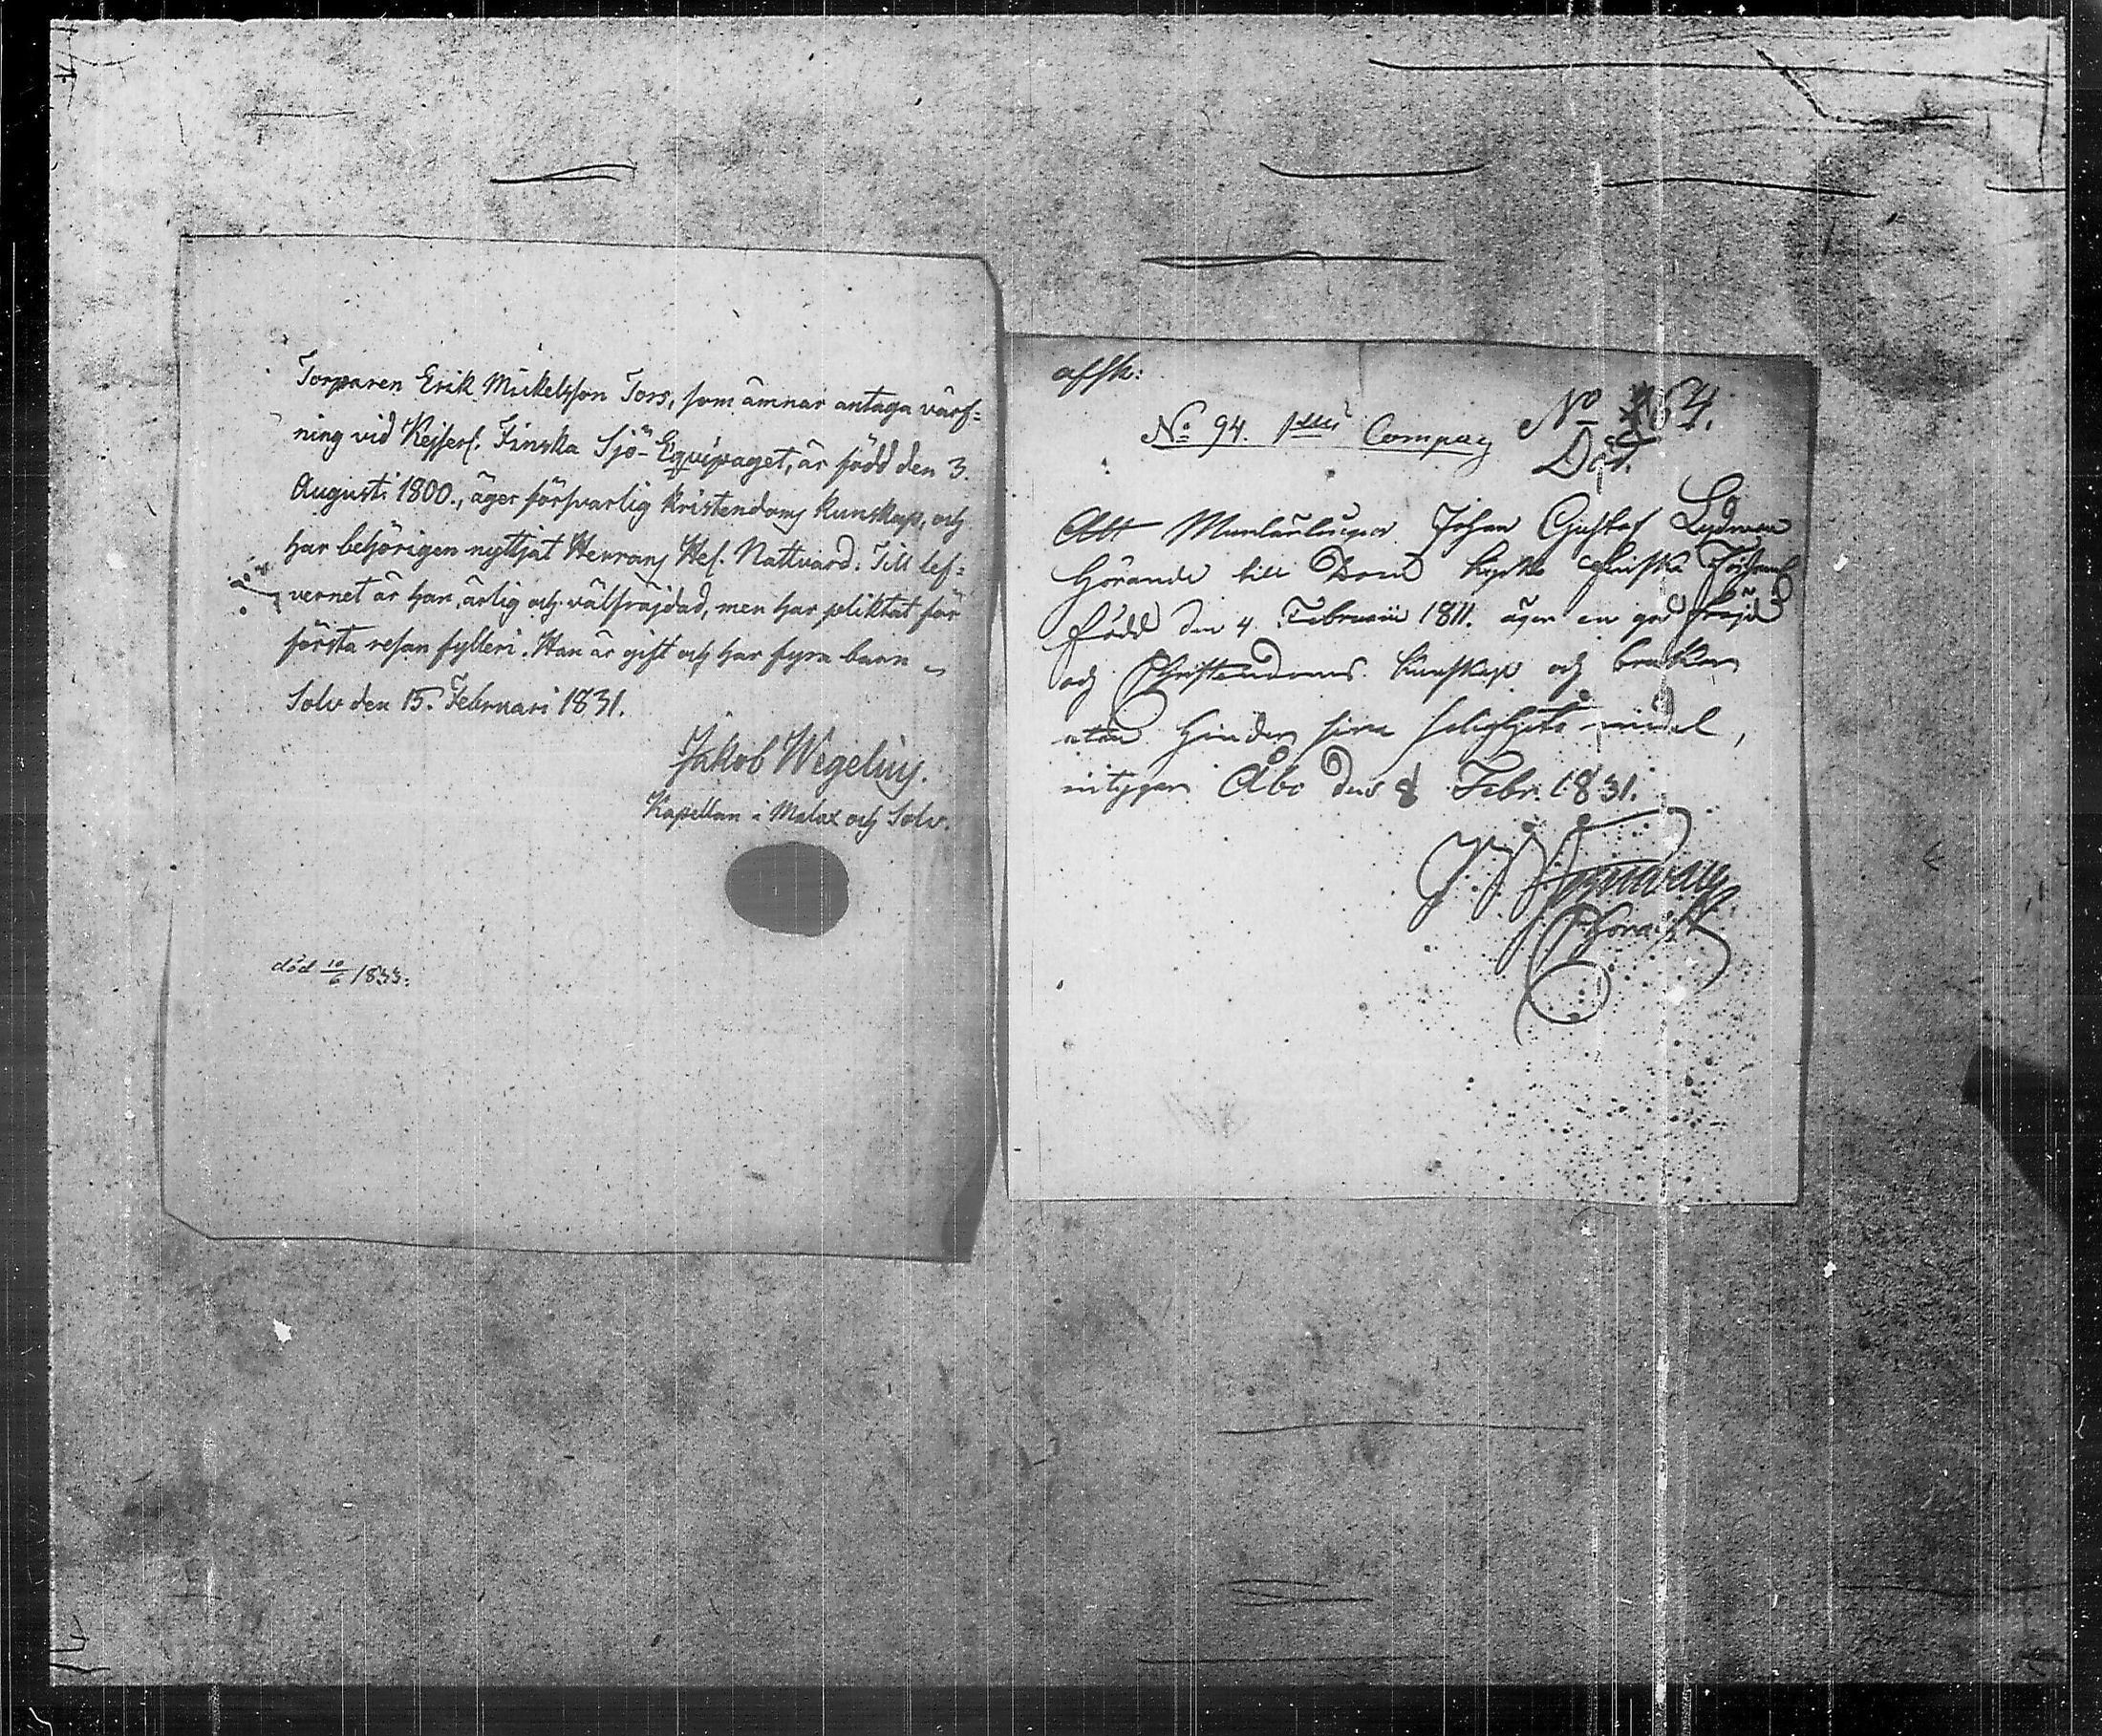 Torparen Erik Mickelsson Tors, som ämnar antaga värf=
ning vid Kejserl. Finska Sjö-Equipaget, är född den 3.
Augusti 1800., äger försvarlig kristendoms kunskap, och
har behörigen nyttjat Herrans Hel. Nattvard. Till lef=
vernet är han ärlig och välfräjdad, men har pliktat för
första resan fylleri. Han är gift och har fyra barn
Solv den 15. Februari 1831.
Jakob Wegelius.
Kapellan i Malax och Solv.
död 10/6 1833.
afsk:
No 94. 1sta Compag
No 64.
Död.
Att Johan Gustaf Lydman
hörande till Dom kyrko Finska Församl
född den 4 Februarii 1811. äger en god fräjd
och Christendoms kunskap och brukar
utan hinder sina salighets medel,
intygar Åbo den 8 Febr. 1831.